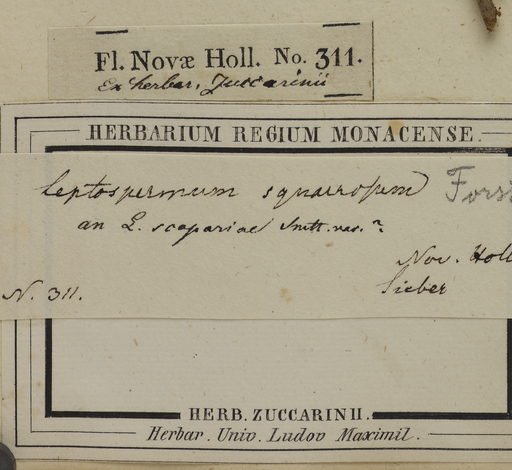 Fl. Novæ Holl. No. 311.
Ex herbar. Zuccarinii
HERBARIUM REGIUM MONACENSE.
Leptospermum squarrosum Forst
an L. scopariae Smtt. var.?
Nov. Holl
N. 311.
Sieber
HERB. ZUCCARINII.
Herbar. Univ. Ludov Maximil.